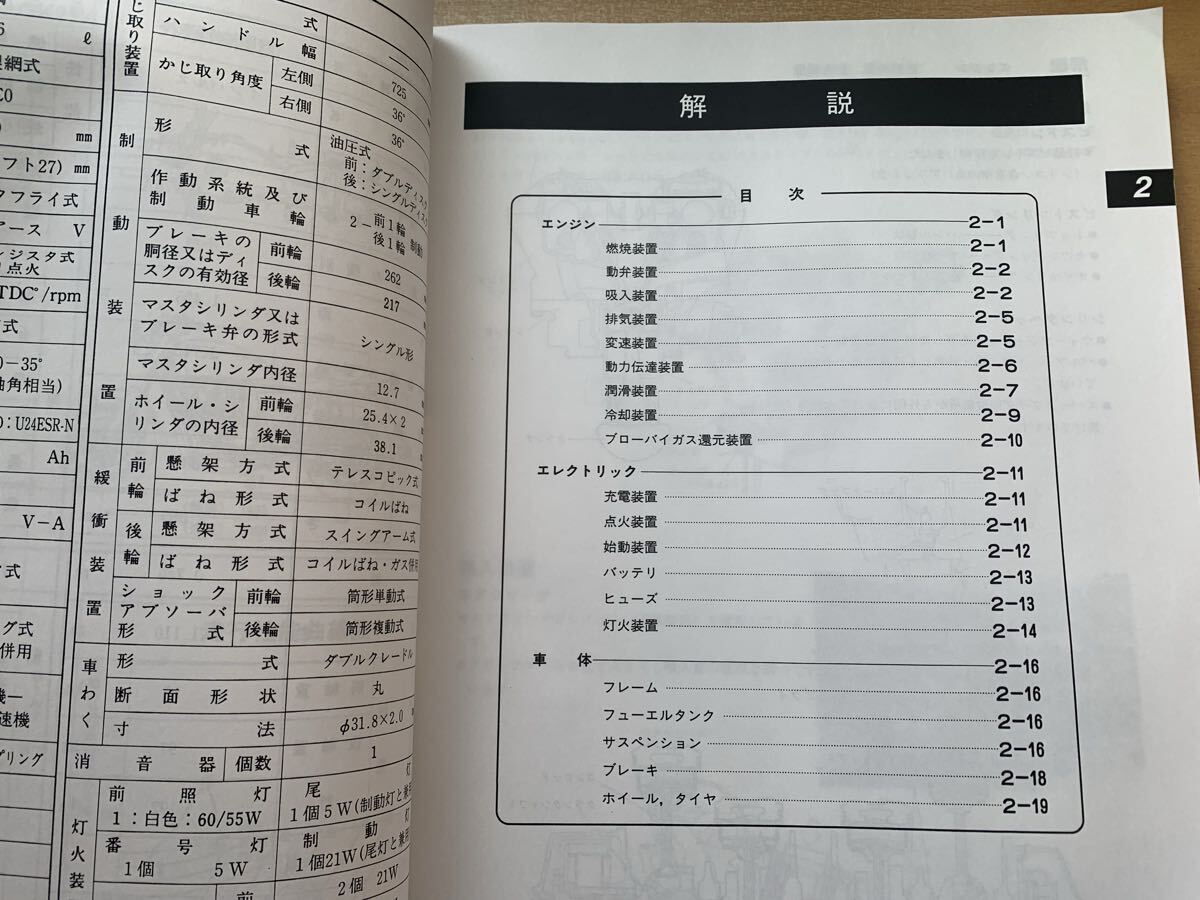 ℓ
mm
フト27) mm
フライ式
アース V
点火
TDC°/rpm
0-35°
U24ESR-N
Ah
V-A
式
グ式
併用
速機
プリング
じ取り装置
式
ハンドル幅
725
かじ取り角度
左側
36°
右側
36°
制動装置
形式
油圧式
前：ダブルディスク
後：シングルディスク
作動系統及び
制動車輪
2-
前1輪 制動
後1輪
ブレーキの
胴径又はディ
スクの有効径
前輪
262
後輪
217
マスタシリンダ又は
ブレーキ弁の形式
シングル形
マスタシリンダ内径
12.7
ホイール・シ
リンダの内径
前輪
25.4×2
後輪
38.1
緩衝装置
前輪
懸架方式
テレスコピック式
ばね形式
コイルばね
後輪
懸架方式
スイングアーム式
ばね形式
コイルばね・ガス併用
ショック
アブソーバ
形式
前輪
筒形単動式
後輪
筒形複動式
車わく
形式
ダブルクレードル
断面形状
丸
寸法
φ31.8×2.0
消音器
個数
1
灯火装
前照灯
1：白色：60/55W
尾灯
1個5W(制動灯と兼用
番号灯
1個 5W
制動
1個21W(尾灯と兼用
前
2個 21W
解 説
2
目 次
エンジン 2-1
燃焼装置 2-1
動弁装置 2-2
吸入装置 2-2
排気装置 2-5
変速装置 2-5
動力伝達装置 2-6
潤滑装置 2-7
冷却装置 2-9
ブローバイガス還元装置 2-10
エレクトリック 2-11
充電装置 2-11
点火装置 2-11
始動装置 2-12
バッテリ 2-13
ヒューズ 2-13
灯火装置 2-14
車 体 2-16
フレーム 2-16
フューエルタンク 2-16
サスペンション 2-16
ブレーキ 2-18
ホイール，タイヤ 2-19